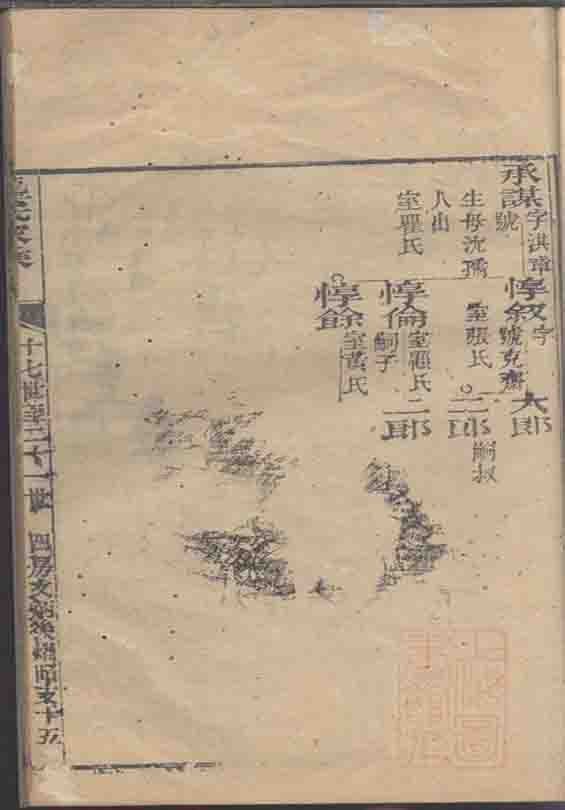 承謀
字淇章
號
生母沈孺
人出
室瞿氏
惇叙
字
號克齋
室張氏
惇倫
室瞿氏
嗣子
惇餘
室黃氏
大郎
二郎
嗣叔
二郎
十七世至二十一世
四房文
後
昭支十五